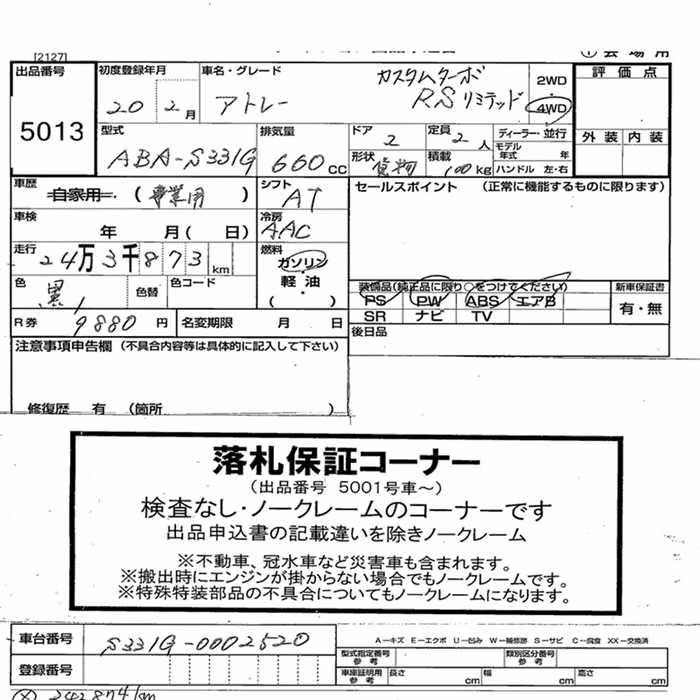 [2127]
① 会場用
出品番号 初度登録年月 車名・グレード カスタムターボ 2WD 評価点
5013 20 2月 アトレー RSリミテッド 4WD
外装 内装
型式 排気量 ドア 定員 ディーラー・並行
ABA-S331G 660cc 2 2人 モデル年式 年
形状 貨物 積載 100kg ハンドル 左・右
車歴 自家用 (事業用) シフト AT セールスポイント (正常に機能するものに限ります)
車検 年 月(日) 冷房 AAC
走行 24万3千873km 燃料 ガソリン
軽油
( )
色 黒 色替 色コード
装備品(純正品に限り○をつけてください) 新車保証書
PS PW ABS エアB 有・無
SR ナビ TV
R券 9880円 名変期限 月 日
後日品
注意事項申告欄 (不具合内容等は具体的に記入して下さい)
修復歴 有 (箇所 )
落札保証コーナー
(出品番号 5001号車～)
検査なし・ノークレームのコーナーです
出品申込書の記載違いを除きノークレーム
※不動車、冠水車など災害車も含まれます。
※搬出時にエンジンが掛からない場合でもノークレームです。
※特殊特装部品の不具合についてもノークレームになります。
車台番号 S331G-0002520
A－キズ E－エクボ U－凹み W－補修跡 S－サビ C－腐食 XX－交換済
登録番号 型式指定番号 参考 類別区分番号 参考
車庫証明用 参考 長さ cm 幅 cm 高さ cm
242874km